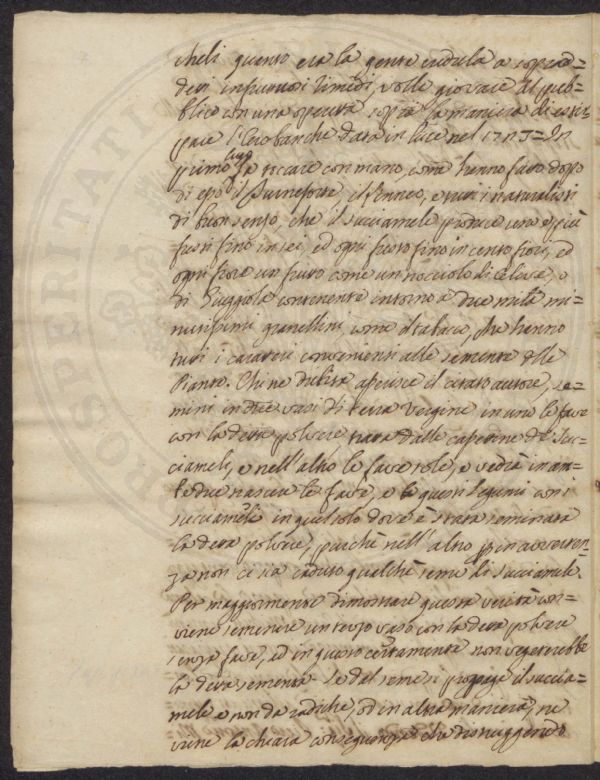 cheli quanto era la gente credula a soprad=
detti infruttuosi rimedi, volle giovare al pub=
blico con una operetta sopra la maniera di estir
pare l'Orobanche data in luce nel 1723= In
primo luogo fa toccare con mano, come hanno fatto dopo
di esso il , il , e tutti i naturalisti
di buon senso, che il succiamele produce uno o più
fusti fino in sei, ed ogni fusto fino in cento fiori, ed
ogni fiore un frutto come un nocciolo di Ciliegie, o
di Giuggiole contenente intorno a due mila mi=
nutissimi granellini, come il tabacco, che hanno
tutti i caratteri convenienti alle semente delle
Piante. Chi ne dubita asserisce il citato autore, se=
mini in due vasi di terra vergine in uno le fave
con la detta polvere, tratta dalle casettine de Suc
ciameli, e nell'altro le fave sole, e vedrà in am=
bedue nascere le fave, e le questi legumi con i
succiameli in quel solo dove è stata seminata
la detta polvere, purchè nell'altro per inavverten
za non ci sia caduto qualche seme di succiamele.
Per maggiormente dimostrare questa verità con=
viene seminare un terzo vaso con la detta polvere
senza fave, ed in questo certamente non vegeterebbe
la detta sementa. Se dal seme si propaga il succia=
mele e non da radiche, od in altra maniera, ne
viene la chiara conseguenza che distruggendo
PROSPERITATI